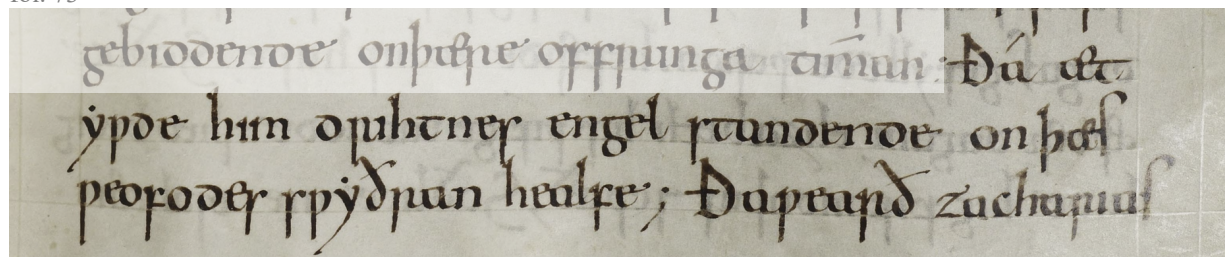 gebiddende onþære offrunga timan: Ða æt
ẏƿde him drihtnes engel standende on þæs
ƿeofodes sƿẏðran healfe; Ðaƿearð zacharias